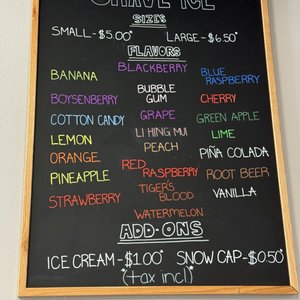 SHAVE ICE
SIZES
SMALL-$5.00* LARGE-$6.50*
FLAVORS
BANANA
BOYSENBERRY
COTTON CANDY
LEMON
ORANGE
PINEAPPLE
STRAWBERRY
BLACKBERRY
BUBBLE
GUM
GRAPE
LI HING MUI
PEACH
RED
RASPBERRY
TIGER'S
BLOOD
WATERMELON
BLUE
RASPBERRY
CHERRY
GREEN APPLE
LIME
PIÑA COLADA
ROOT BEER
VANILLA
ADD-ONS
ICE CREAM-$1.00* SNOW CAP-$0.50*
*(tax incl)*